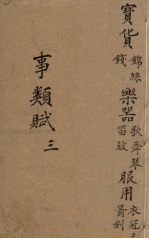 寶貨 錦絲 錢 樂器 歌舞琴 笛鼓 服用 衣冠 箭劍
事類賦 三